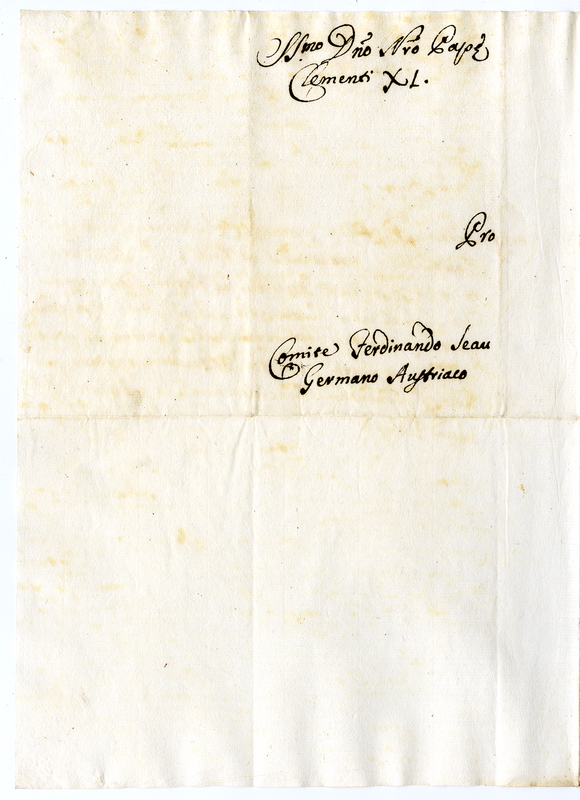 SSmo Dño Nrõ Papę
Clementi XI.
Pro
Comite Ferdinando Seau
Germano Austriaco